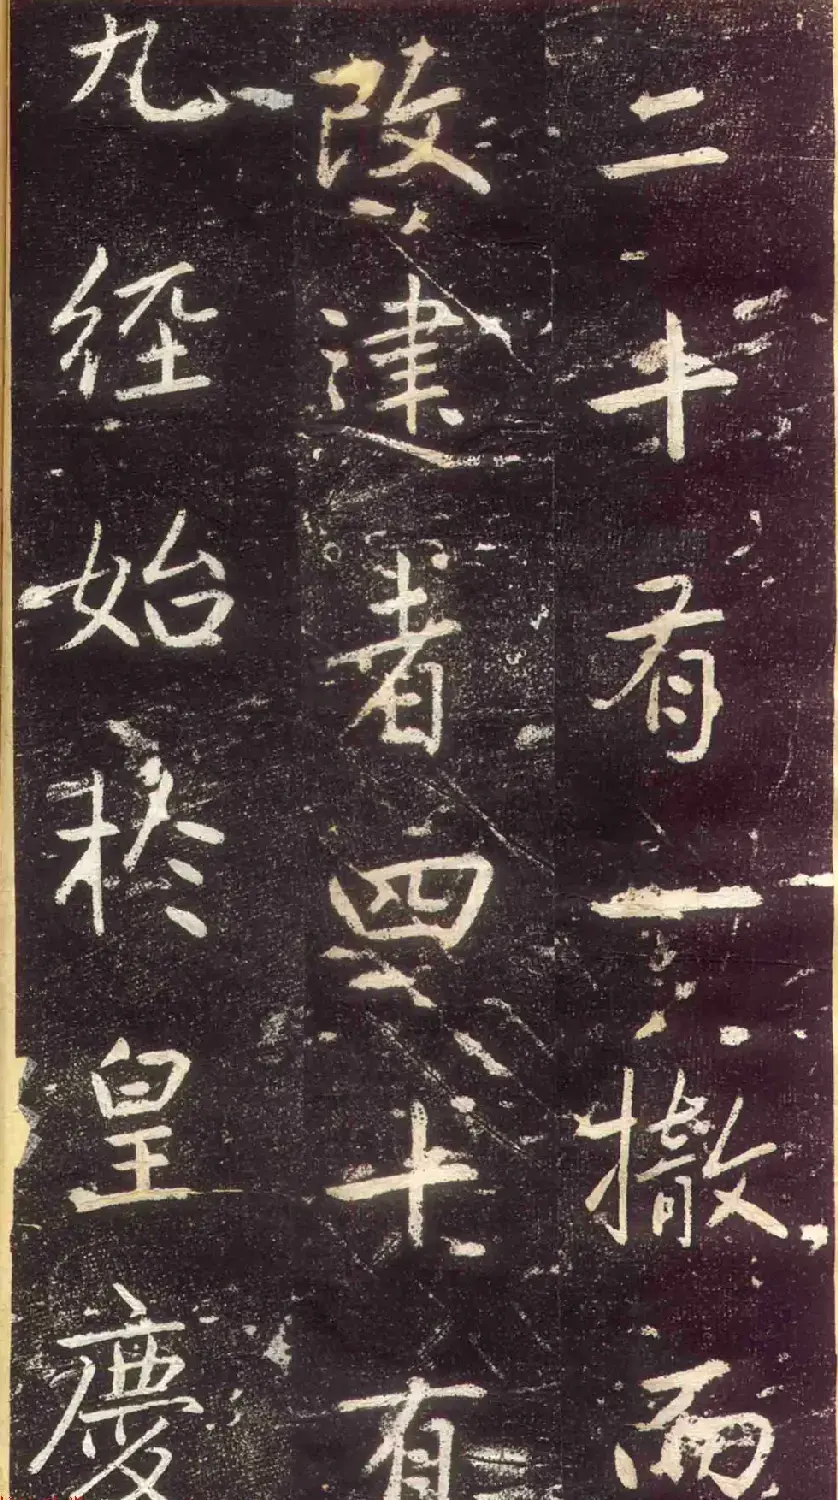 二十有一撤而
改建者四十有
九經始於皇慶